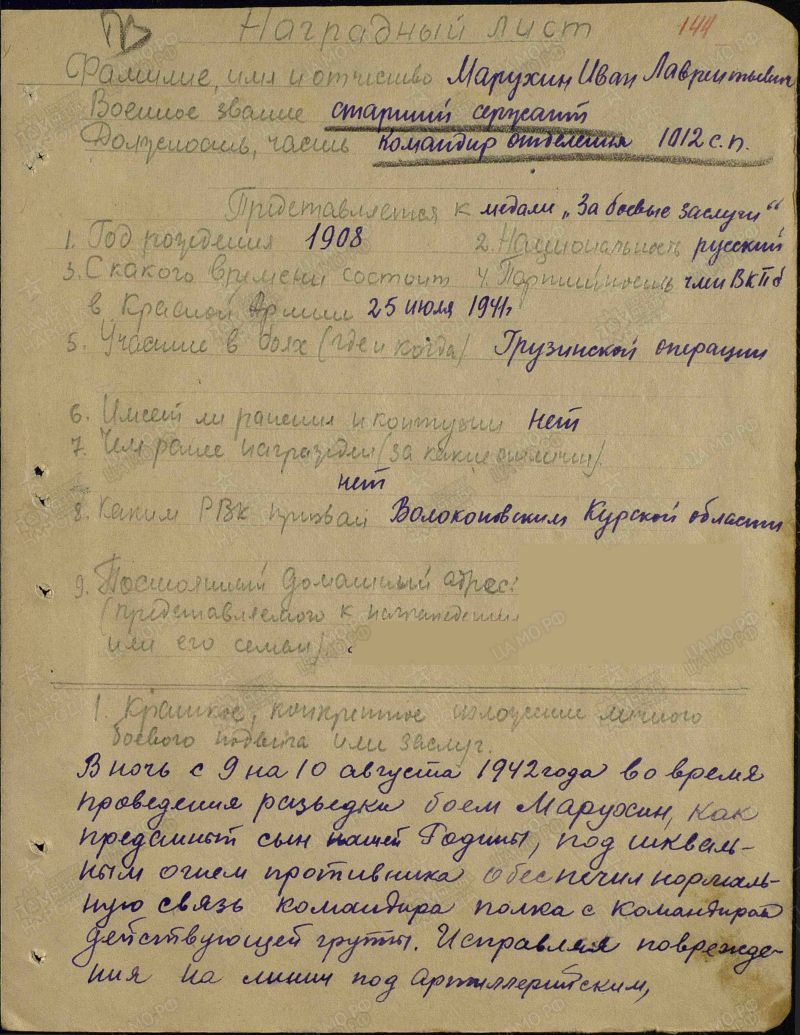 144
Наградной лист
Фамилие, имя и отчество Марухин Иван Лаврентьевич
Военное звание старший сержант
Должность, часть командир отделения 1012 с.п.
Представляется к медали „За боевые заслуги“
1. Год рождения 1908 2. Национальность русский
3. С какого времени состоит 4. Партийность член ВКПб
в Красной Армии 25 июля 1941г
5. Участие в боях (где и когда) Грузинской операции
6. Имеет ли ранения и контузии нет
7. Чем ранее награжден (за какие отличия)
нет
8. Каким РВК призван Волоконовским Курской области
9. Постоянный домашний адрес:
(представляемого к награждению
или его семьи)
1. Краткое, конкретное изложение личного
боевого подвига или заслуг.
В ночь с 9 на 10 августа 1942 года во время
проведения разведки боем Марухин, как
преданный сын нашей Родины, под шкваль-
ным огнем противника обеспечил нормаль-
ную связь командира полка с командиром
действующей группы. Исправляя поврежде-
ния на линии под артиллерийским,